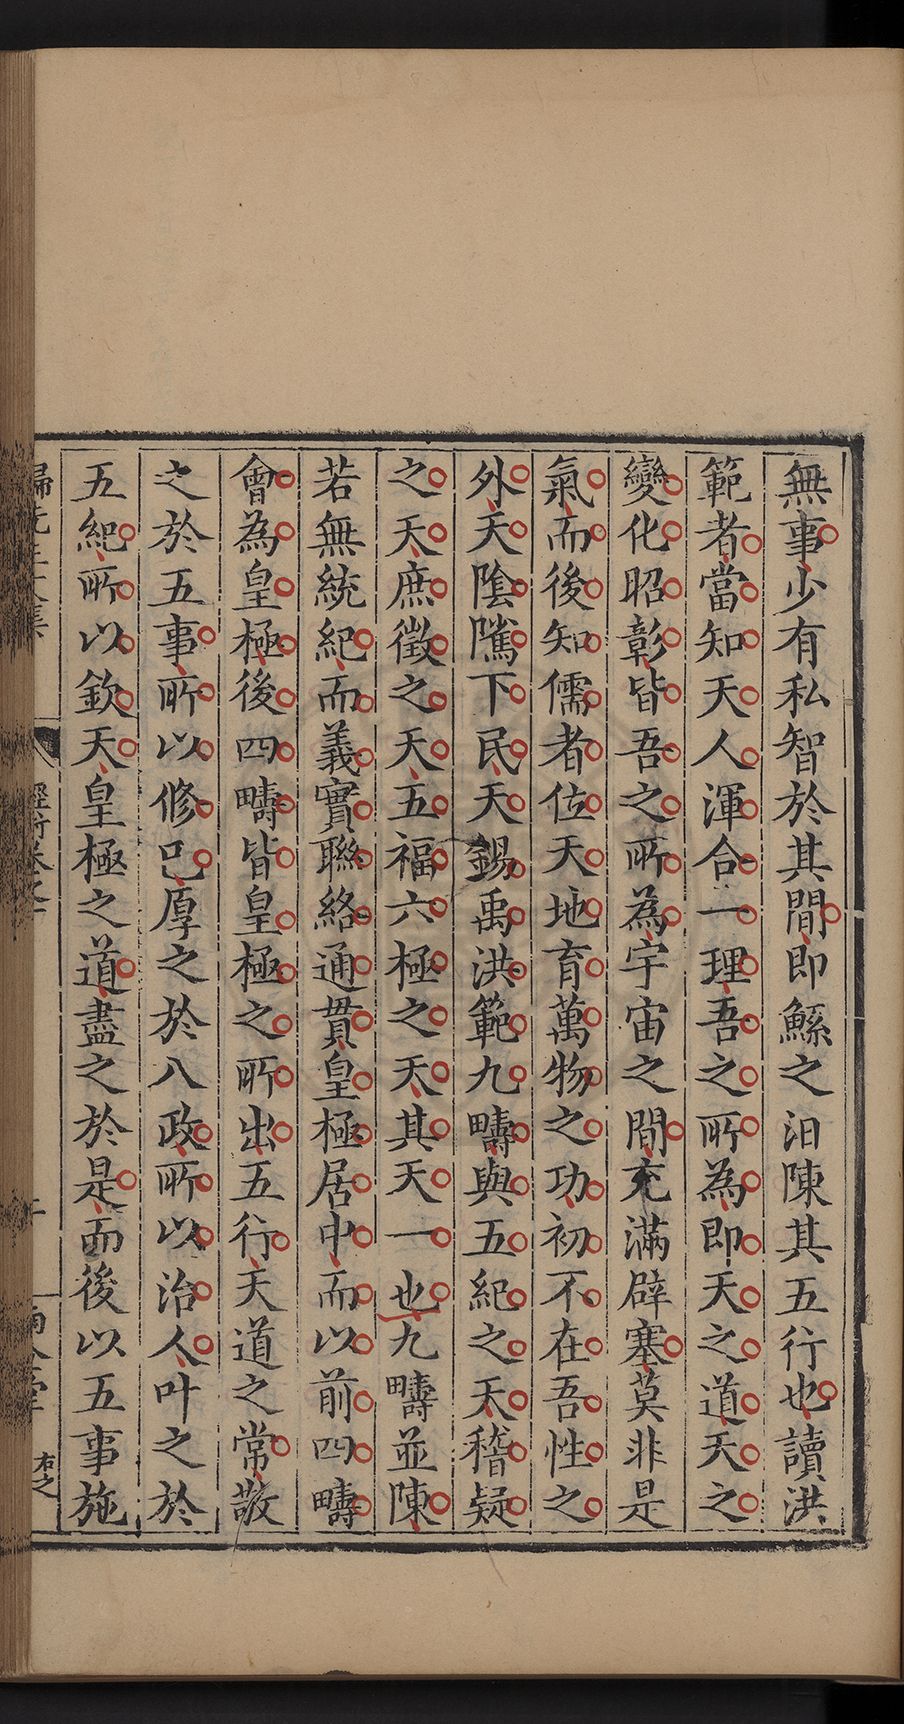 無事少有私智於其間即鯀之汩陳其五行也讀洪
範者當知天人渾合一理吾之所為即天之道天之
變化昭彰皆吾之所為宇宙之間充滿辟塞莫非是
氣而後知儒者位天地育萬物之功初不在吾性之
外天陰隲下民天錫禹洪範九疇與五紀之天稽疑
之天庶徵之天五福六極之天其天一也九疇並陳
若無統紀而義實聯絡通貫皇極居中而以前四疇
會為皇極後四疇皆皇極之所出五行天道之常敬
之於五事所以修己厚之於八政所以治人叶之於
五紀所以欽天皇極之道盡之於是而後以五事施